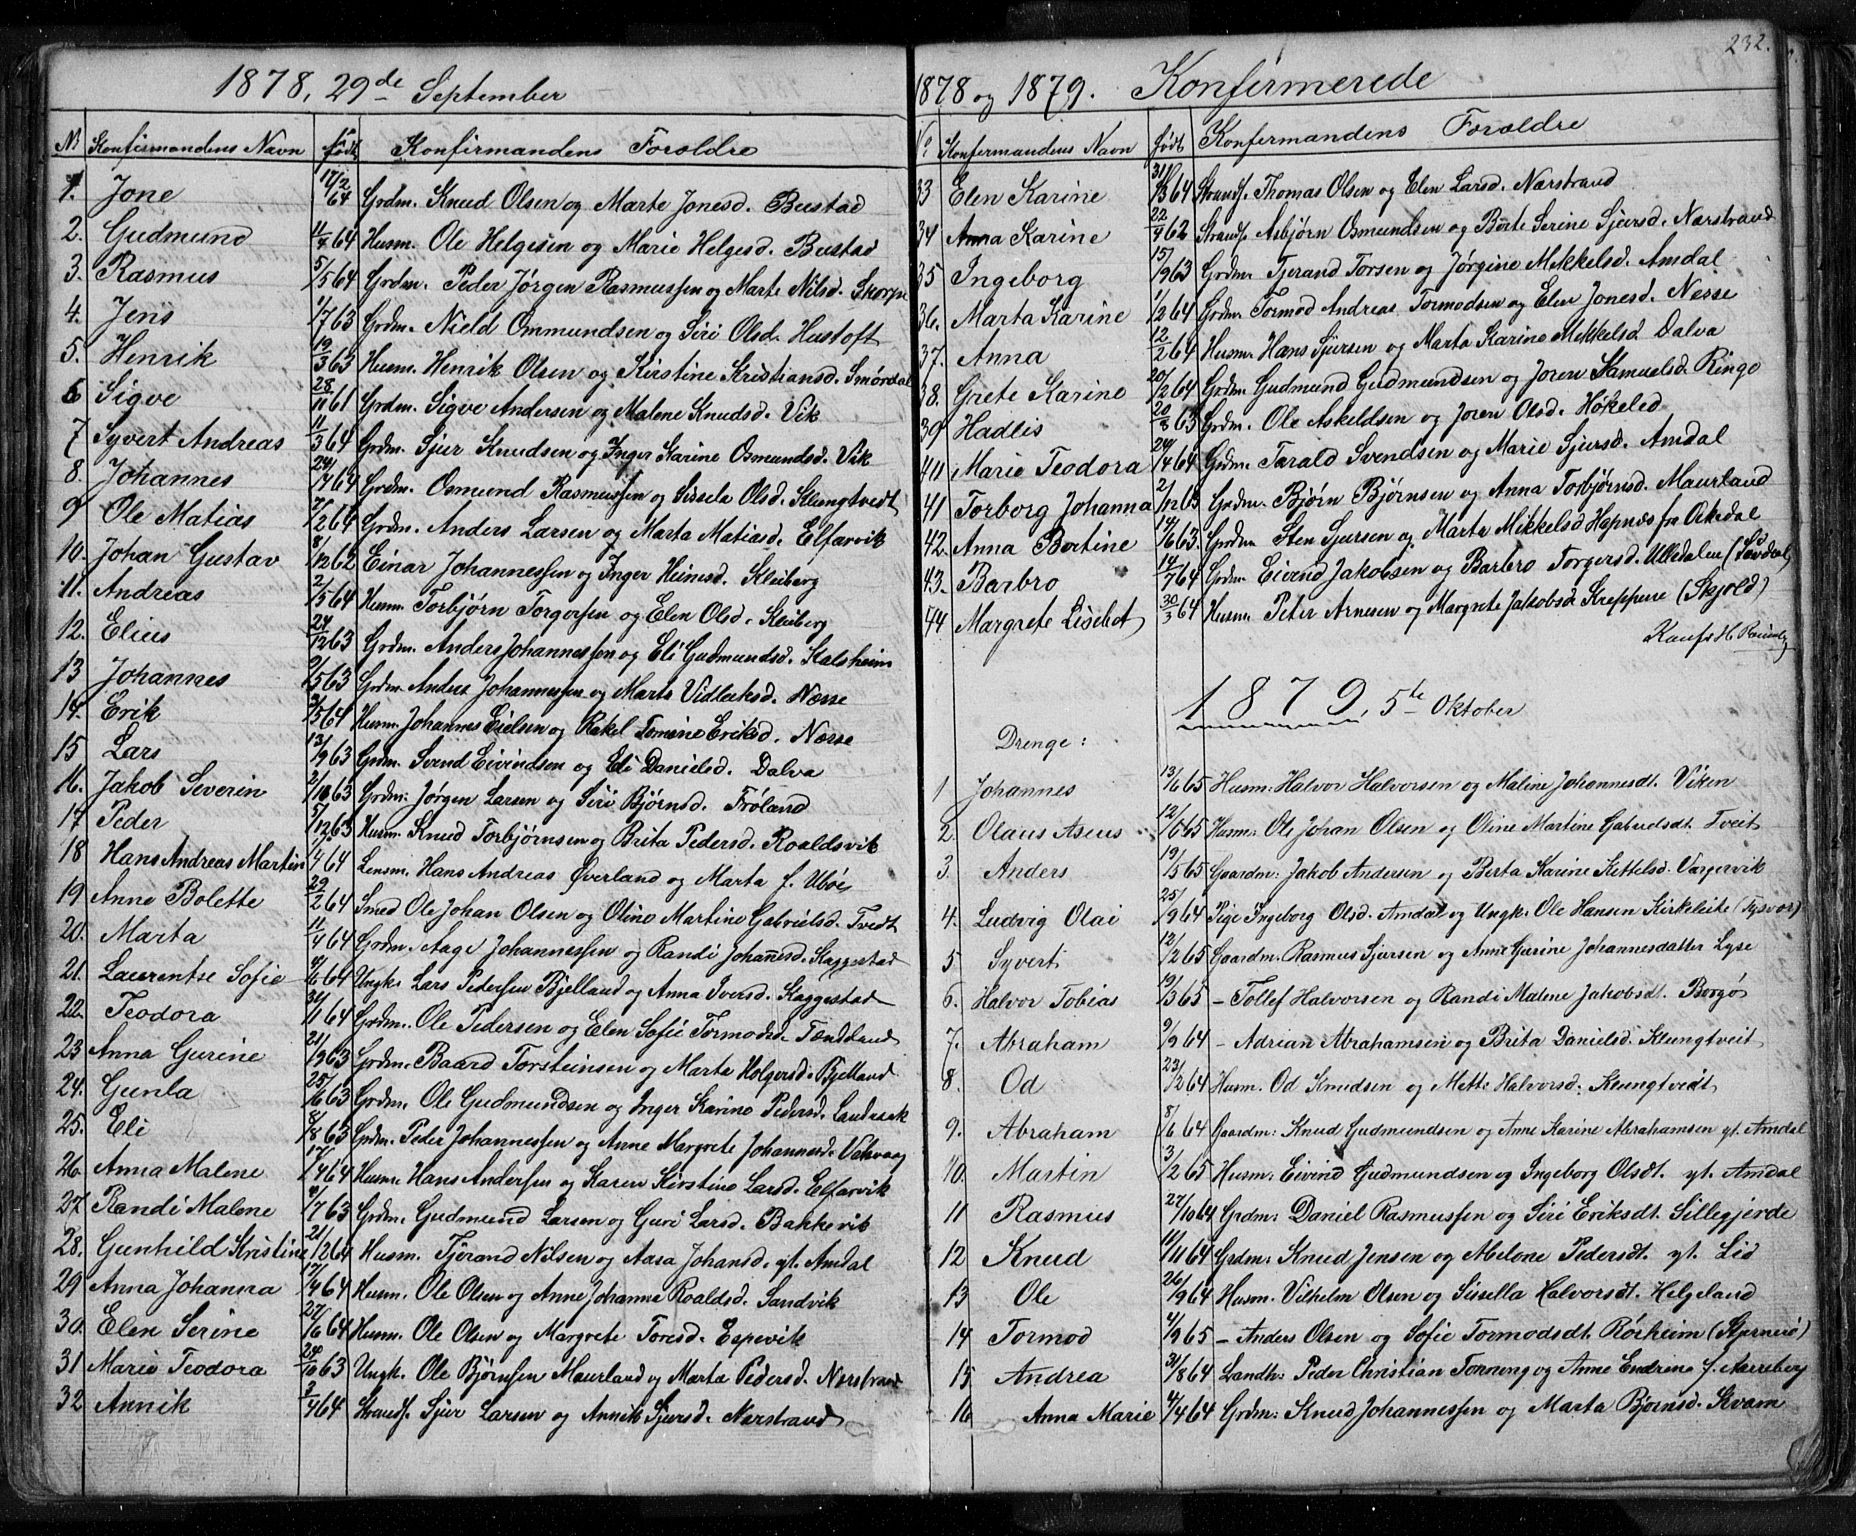 1878, 29de September
No Konfirmandens Navn født Konfirmandens Forældre
1. Jone 17/2 64 Grdm. Knud Olsen og Marte Jonesd. Bustad
2. Gudmund 11/7 64 Husm. Ole Helgesen og Marie Helgesd. Bustad
3. Rasmus 5/5 64 Grdm. Peder Jørgen Rasmussen og Marte Nilsd. Skorpe
4. Jens 1/7 63 Grdm. Nield Ommundsen og Siri Olsd. Hustoft
5. Henrik 19/3 63 Husm. Henrik Olsen og Kirstine Kristiansd. Smørdal
6 Sigve 28/11 61 Grdm. Sigve Andersen og Malene Knudsd. Vik
7 Syvert Andreas 11/3 64 Grdm. Sjur Knudsen og Inger Karine Osmundsd. Vik
8. Johannes 24/7 64 Grdm. Osmund Rasmussen og Sissela Olsd. Klungtvedt
9 Ole Matias 7/2 64 Grdm. Anders Larsen og Marta Matiasd. Elfarvik
10. Johan Gustav 8/12 62 Einar Johannessen og Inger Heinesd. Kleiberg
11. Andreas 2/5 64 Husm. Torbjørn Torgersen og Elen Olsd. Kleiberg
12. Elius 24/12 63 Grdm. Anders Johannessen og Eli Gudmundsd. Kalsheim
13 Johannes 9/5 63 Grdm. Anders Johannessen og Marta Vidleiksd. Næsse
14. Erik 3/5 64 Husm. Johannes Eielsen og Rakel Tomine Eriksd. Næsse
15 Lars 13/9 63 Grdm. Svend Eivindsen og Eli Danielsd. Dalva
16. Jakob Severin 2/10 63 Grdm. Jørgen Larsen og Siri Bjørnsd. Frøland
17 Peder 5/12 63 Husm. Knud Torbjørnsen og Brita Pedersd. Roaldsvik
18 Hans Andreas Martin 1/4 64 Lensm. Hans Andreas Øverland og Marta f. Ubøe
19 Anne Bolette 29/2 64 Smed Ole Johan Olsen og Oline Martine Gabrielsd. Tvedt
20. Marta 11/4 64 Grdm. Aage Johannessen og Randi Johannesd. Skaggestad
21. Laurentse Sofie 4/6 64 Ungk. Lars Pedersen Bjelland og Anna Iversd. Skaggestad
22. Teodora 31/1 64 Grdm. Ole Pedersen og Elen Sofie Tormodsd. Tændland
23 Anna Gurine 21/9 63 Grdm. Baard Torsteinsen og Marta Holgersd. Bjelland
24. Gunla 25/6 63 Grdm. Ole Gudmundsen og Inger Karine Pedersd. Landraak
25. Eli 8/8 63 Grdm. Peder Johannessen og Anne Margrete Johannesd. Vatsvaag
26. Anna Malene 17/4 64 Husm. Hans Andersen og Karen Kirstine Larsd. Elfarvik
27. Randi Malene 9/7 63 Grdm. Gudmund Larsen og Guri Larsd. Bakkevik
28. Gunhild Kristine 21/2 64 Husm. Tjerand Nilsen og Aasa Johansd. yt. Amdal
29 Anna Johanna 17/4 64 Husm. Ole Olsen og Anne Johanna Roaldsd. Sandvik
30. Elen Serine 27/6 64 Husm. Ole Olsen og Margrete Toresd. Espevik
31 Marie Teodora 24/10 63 Ungk. Ole Bjørnsen Maurland og Marta Pedersd. Nærstrand
32 Annik 3/4 64 Strands. Sjur Larsen og Annik Sjursd. Nærstrand
232.
1878 og 1879. Konfirmerede
No Konfirmandens Navn født Konfirmandens Forældre
33 Elen Karine 31/3 64 Strands. Thomas Olsen og Elen Larsd. Nærstrand
34 Anna Karine 22/9 62 Strands. Asbjørn Osmundsen og Berte Serine Sjursd. Nærstrand
35 Ingeborg 15/9 63 Grdm. Tjerand Torsen og Jørgine Mikkelsd. Amdal
36. Marta Karine 1/2 64 Grdm. Tormod Andreas Tormodsen og Elen Jonesd. Nesse
37. Anna 12/2 64 Husm. Hans Sjursen og Marta Karine Mikkelsd Dalva
38. Grete Karine 20/2 64 Grdm. Gudmund Gudmundsen og Joren Samuelsd. Ringe
39 Hadlis 20/8 63 Grdm. Ole Askeldsen og Joren Olsd. Høkeled
40 Marie Teodora 24/4 64 Grdm. Tarald Svendsen og Marie Sjursd. Amdal
41 Torborg Johanna 2/12 63 Grdm. Bjørn Bjørnsen og Anna Torbjørnsd. Maurland
42. Anna Bertine 14/6 63. Grdm Sten Sjursen og Marta Mikkelsd Hapnæs fra Økedal
43. Barbro 14/7 64 Grdm. Eivend Jakobsen og Barbro Torgersd. Ulledalen (Søvdal)
44 Margrete Lisebet 30/3 64 Husm. Peter Arnesen og Margrete Jakobsd. Kreppene (Skjold)
1879, 5te Oktober
Drenge:
1 Johannes 13/6 65 Husm: Halvor Halvorsen og Maline Johannesdt. Viken
2. Olaus Aseus 12/6 65 Husm: Ole Johan Olsen og Oline Martine Gabrielsdt. Tveit
3. Anders 19/5 65 Gaardm: Jakob Andersen og Berta Karine Kettelsd. Vargervik
4. Ludvig Olai 25/9 64 Pige Ingeborg Olsd. Amdal og Ungk. Ole Hansen Kirkeleite (Tysvær)
5 Syvert 12/2 65 Gaardm. Rasmus Sjursen og Anne Gurine Johannesdatter Lyse
6. Halvor Tobias 19/3 65 – Tollef Halvorsen og Randi Malene Jakobsdt. Borgø
7. Abraham 9/9 64 – Adrian Abrahamsen og Brita Danielsd. Klungtveit
8. Od 23/2 64 Husm. Od Knudsen og Mette Halvorsd. Klungtvedt
9. Abraham 8/6 64 Gaardm: Knud Gudmundsen og Anne Karine Abrahamsen yt. Amdal
10. Martin 3/2 65 Husm: Eivind Gudmundsen og Ingeborg Olsdt. yt. Amdal
11 Rasmus 27/10 64 Grdm: Daniel Rasmussen og Siri Eriksdt. Sillegjerde
12 Knud 11/11 64 Grdm: Knud Jensen og Melone Pedersdt. yt. Lid
13 Ole 26/9 64 Husm. Vilhelm Olsen og Sissella Halvorsdt. Helgeland
14 Tormod 4/9 65 – Anders Olsen og Sofie Tormodsdt. Rørheim (Stjernerø)
15 Andrea 31/8 64 Landh: Peder Christian Tonning og Anne Endrine f. Aarreberg
16 Anna Marie 4/4 64 Grdm: Knud Johannessen og Marta Bjørnsd. Kvam